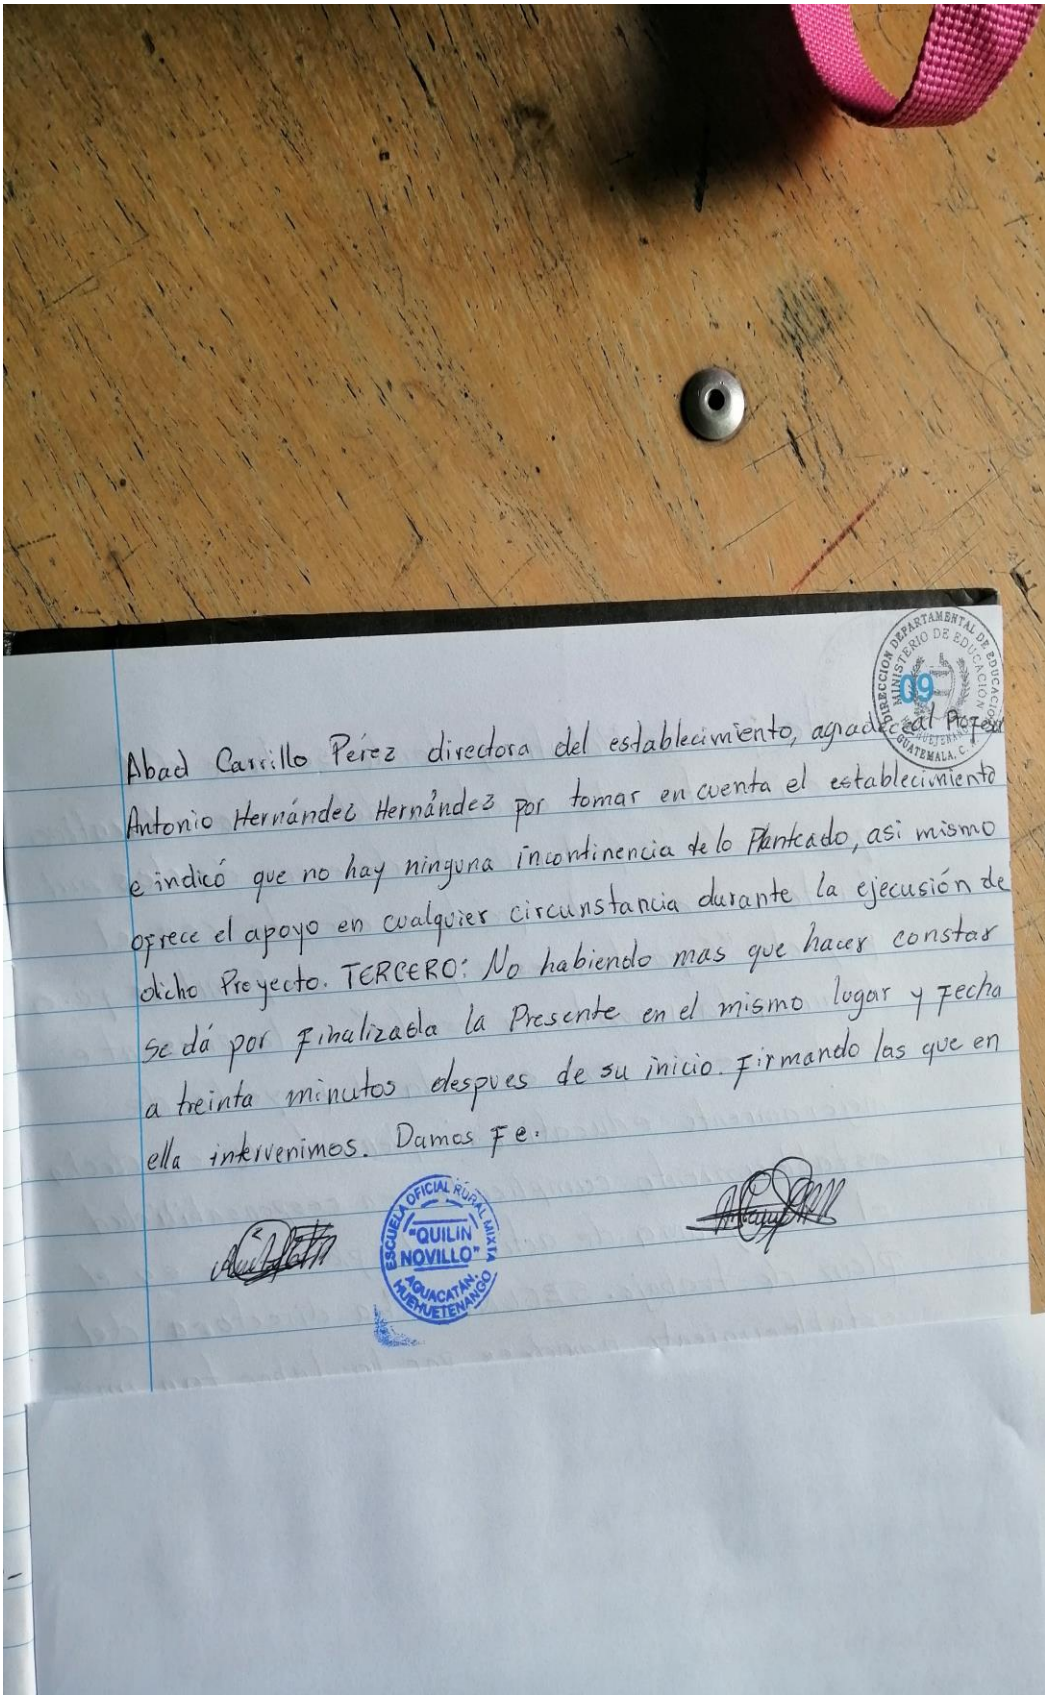 DIRECCION DEPARTAMENTAL DE EDUCACION
MINISTERIO DE EDUCACIÓN
09
GUATEMALA, C.A.
Abad Carrillo Pérez directora del establecimiento, agradece al Profesor
Antonio Hernández Hernández por tomar en cuenta el establecimiento
e indicó que no hay ninguna incontinencia de lo Planteado, asi mismo
ofrece el apoyo en cualquier circunstancia durante la ejecusión de
dicho Proyecto. TERCERO: No habiendo mas que hacer constar
se dá por Finalizada la Presente en el mismo lugar y Fecha
a treinta minutos despues de su inicio. Firmando las que en
ella intervenimos. Damos Fe.
ESCUELA OFICIAL RURAL MIXTA
"QUILIN
NOVILLO"
AGUACATÁN,
HUEHUETENANGO